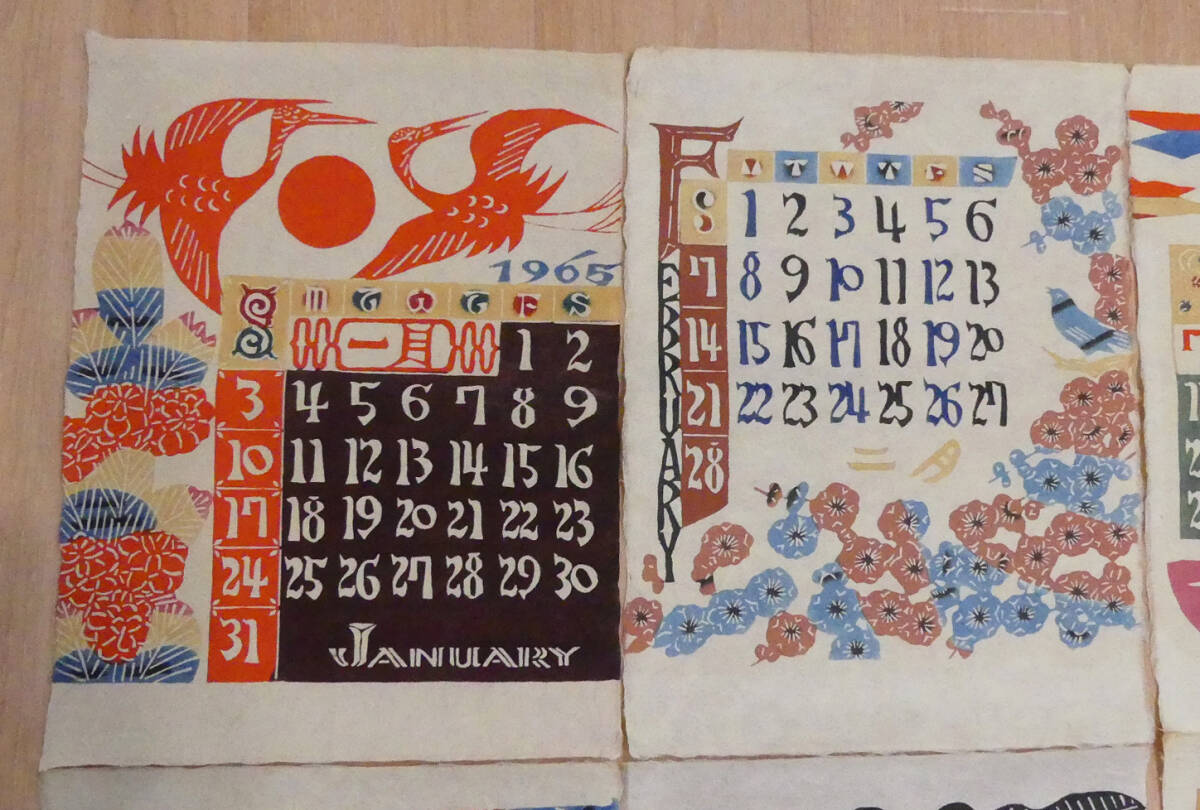 1965
S M T W T F S
一月 1 2
3 4 5 6 7 8 9
10 11 12 13 14 15 16
17 18 19 20 21 22 23
24 25 26 27 28 29 30
31
JANUARY
FEBRUARY
M T W T F S
S 1 2 3 4 5 6
7 8 9 10 11 12 13
14 15 16 17 18 19 20
21 22 23 24 25 26 27
28
二月